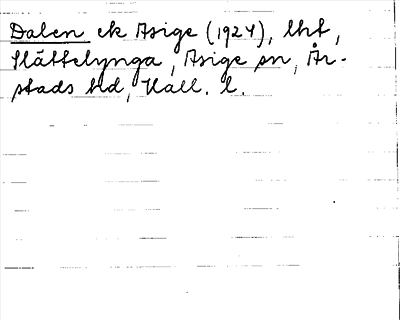 Dalen ek Asige (1924), lht,
Slättelynga, Asige sn, År-
stads hd, Hall. l.